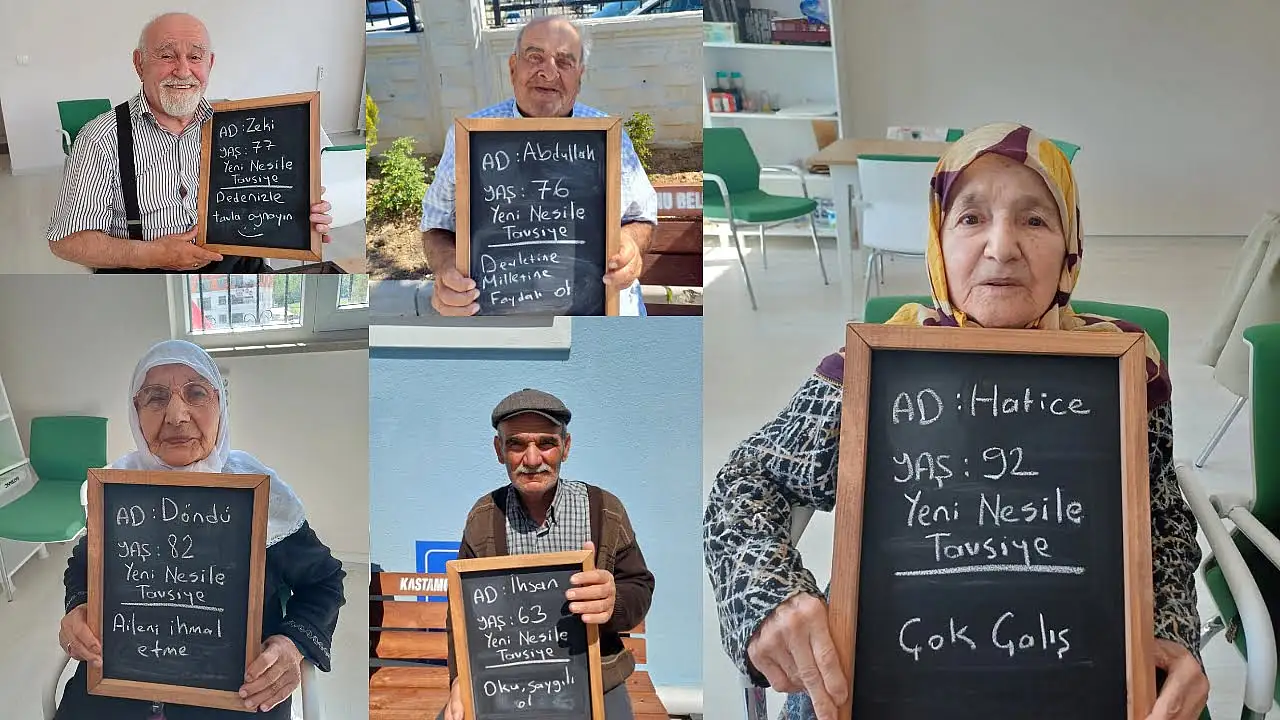 AD : Zeki
YAŞ : 77
Yeni Nesile
Tavsiye
Dedenizle
tavla oynayın
AD : Abdullah
YAŞ : 76
Yeni Nesile
Tavsiye
Devletine
Milletine
Faydalı ol
U BEL
AD : Hatice
YAŞ : 92
Yeni Nesile
Tavsiye
Çok Çalış
AD : Döndü
YAŞ : 82
Yeni Nesile
Tavsiye
Aileni ihmal
etme
KASTAM
AD : İhsan
YAŞ : 63
Yeni Nesile
Tavsiye
Oku, saygılı
ol